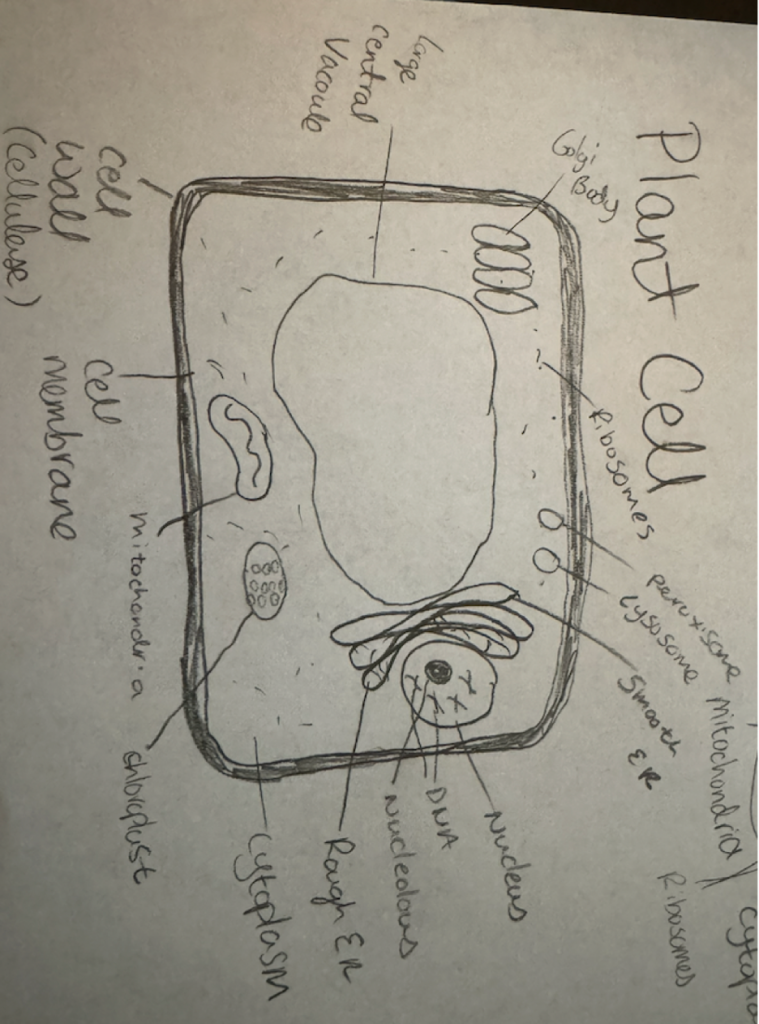 Plant Cell
Golgi
Body
large
central
Vacuole
Ribosomes
peroxisome
Lysosome
Smooth
ER
Mitochondria
Ribosomes
Nucleus
DNA
Nucleolous
Rough ER
Cytoplasm
chloroplast
mitochondria
Cell
Membrane
Cell
Wall
(Cellulase)